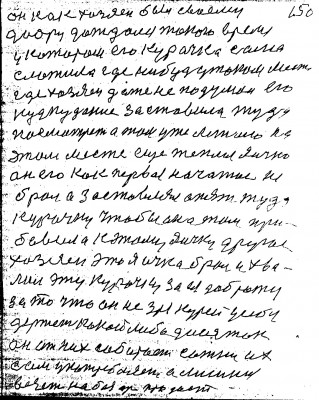 150
он как хозяен всем своему
двору дождался такова время
у которого его курачка сама
сложила где нибудь у таком месте
где хозяен даже не подумал его
кудкудание заставила туда
посмотреть а там уже лежало на
этом месте еще теплая яичко
он его как первае начатае не
брал а заставлял опять туда
курочку чтобы она там при-
бавила к этому яичку другое
хозяен это яичка брал и хва-
лил эту курочку за ее доброту
за то что он не зря курей у себя
держит какой либо десяток
он от них собирает сотни их
сам употребляет а лишнии
везет на базар продает